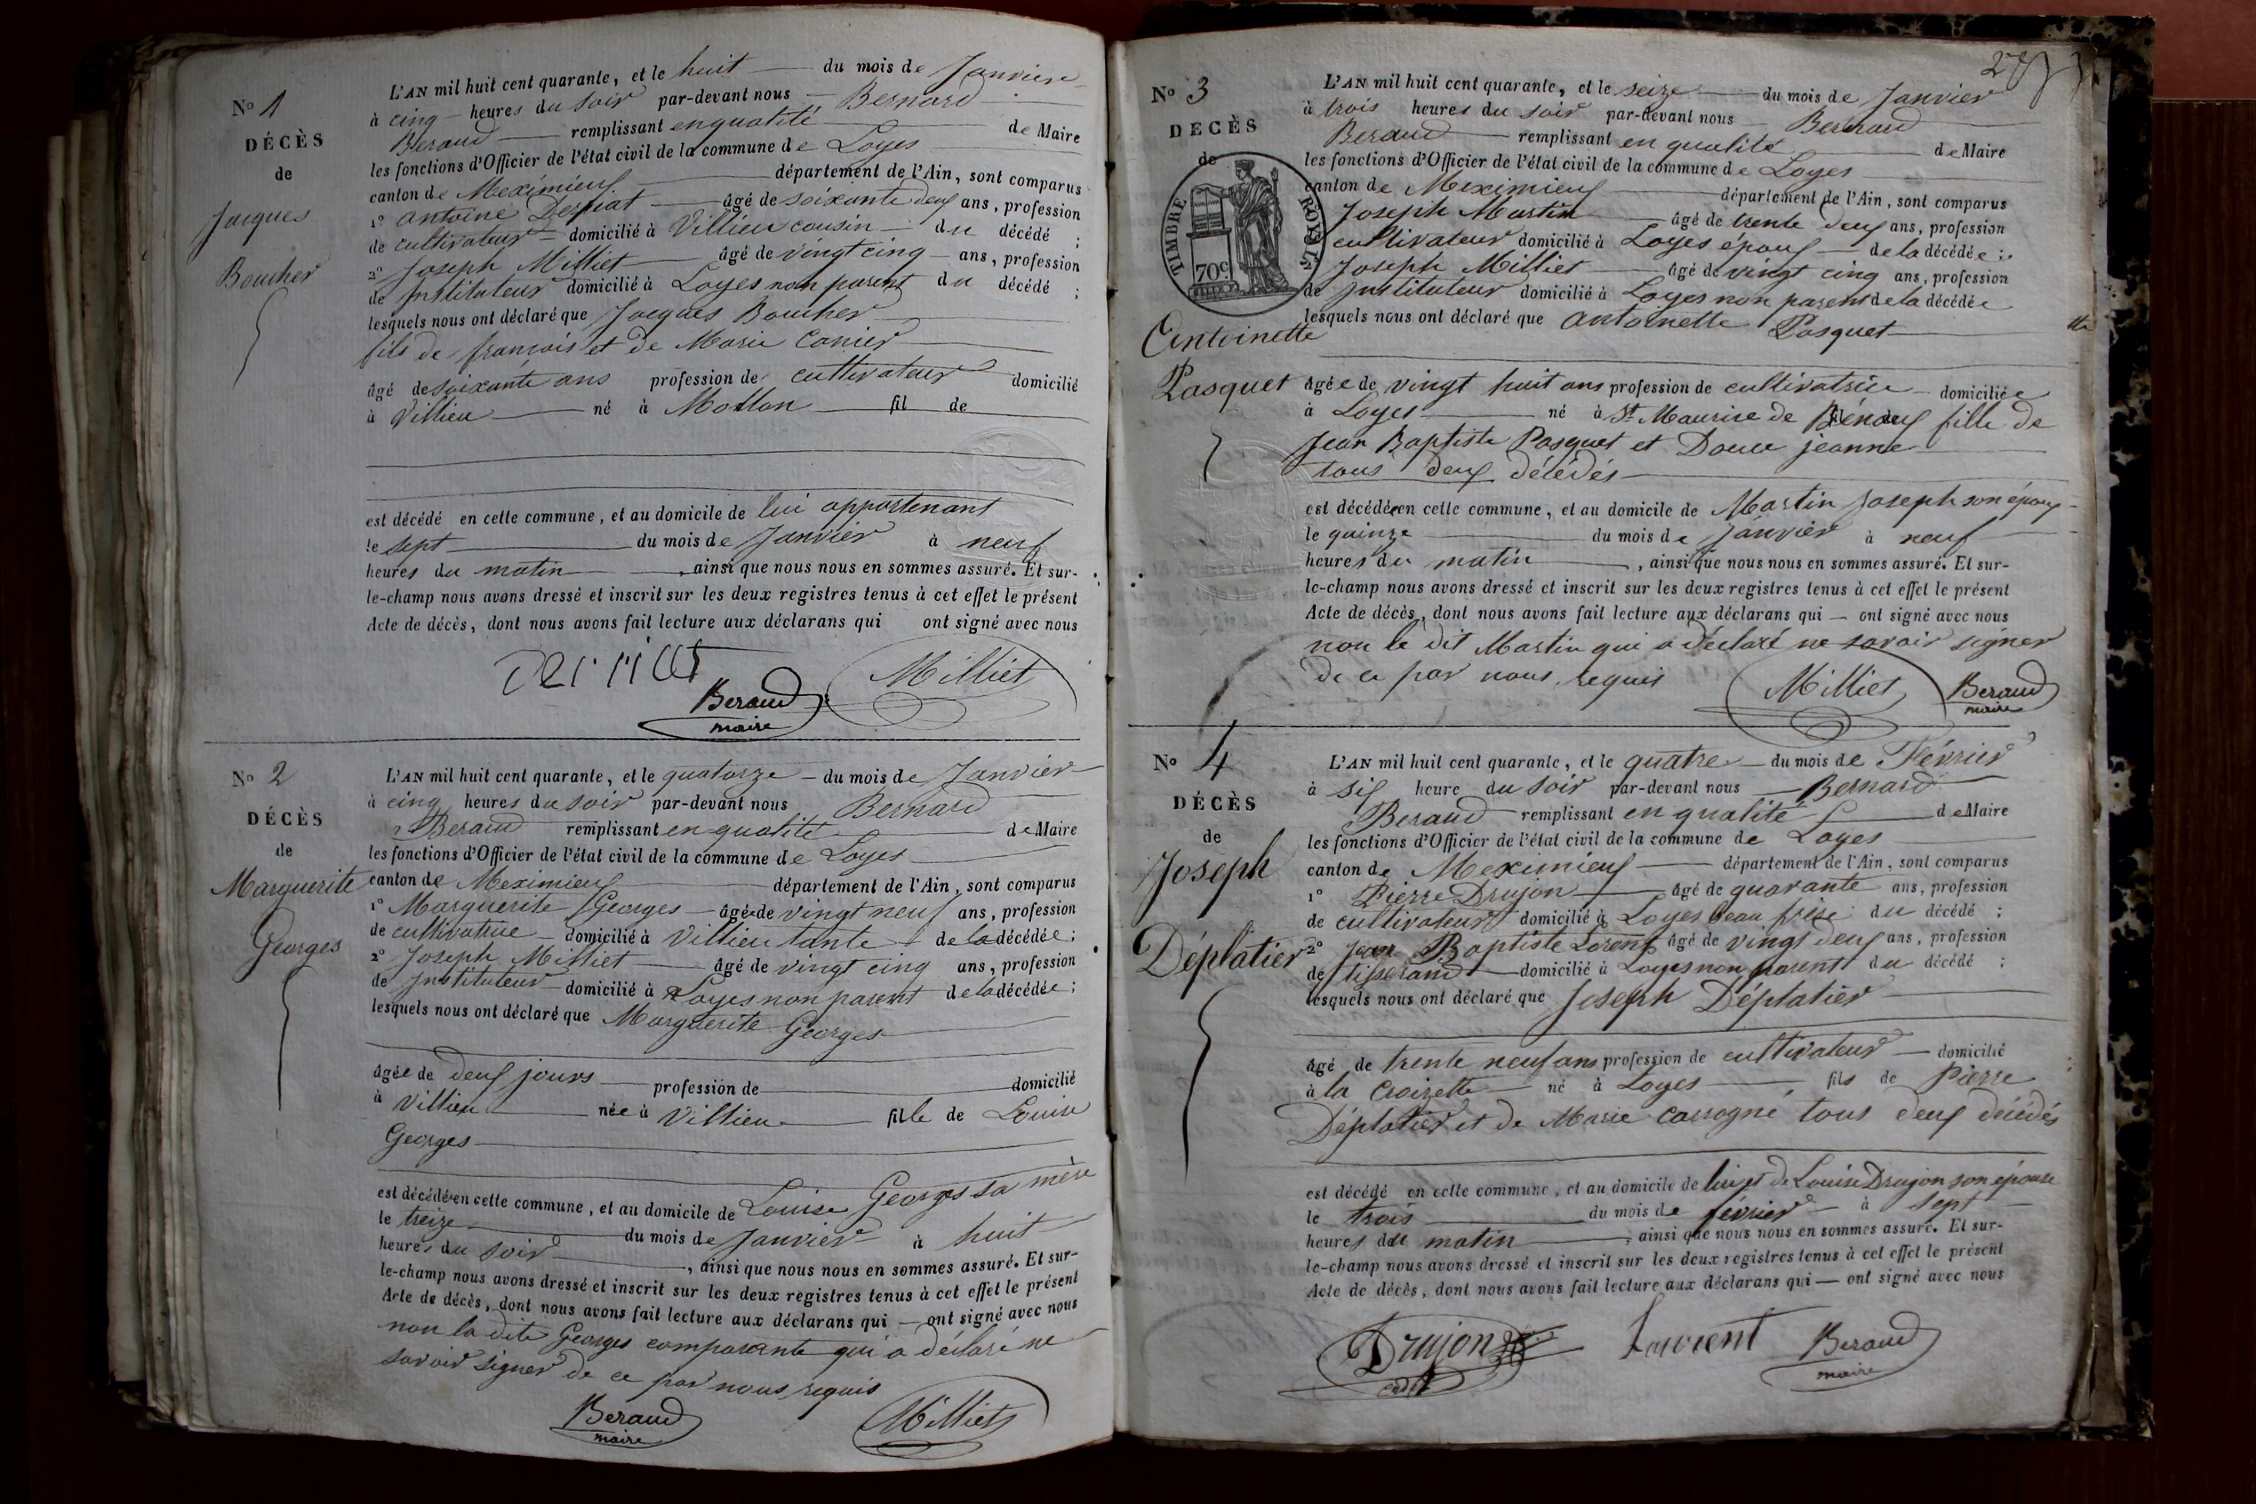 N° 1
DÉCÈS
de
Jacques
Boucher
L'AN mil huit cent quarante, et le huit du mois de Janvier
à cinq heures du soir par-devant nous Bernard
Beraud remplissant en qualité de Maire
les fonctions d'Officier de l'état civil de la commune de Loyes
canton de Meximieux département de l'Ain, sont comparus
1° antoine âgé de soixante deux ans, profession
de cultivateur domicilié à Villieu cousin du décédé ;
2° Joseph Milliet âgé de vingt cinq ans, profession
de Instituteur domicilié à Loyes non parent du décédé ;
lesquels nous ont déclaré que Jacques Boucher
fils de françois et de Marie Canier
âgé de soixante ans profession de cultivateur domicilié
à Villieu né à Mollon fil de
est décédé en cette commune, et au domicile de lui appartenant
le sept du mois de Janvier à neuf
heures du matin , ainsi que nous nous en sommes assuré. Et sur-
le-champ nous avons dressé et inscrit sur les deux registres tenus à cet effet le présent
Acte de décès, dont nous avons fait lecture aux déclarans qui ont signé avec nous
Milliet
Beraud
maire
N° 2
DÉCÈS
de
Marguerite
Georges
L'AN mil huit cent quarante, et le quatorze du mois de Janvier
à cinq heures du soir par-devant nous Bernard
Beraud remplissant en qualité de Maire
les fonctions d'Officier de l'état civil de la commune de Loyes
canton de Meximieux département de l'Ain, sont comparus
1° Marguerite Georges âgée de vingt neuf ans, profession
de cultivatrice domicilié à Villieu tante de la décédée ;
2° Joseph Milliet âgé de vingt cinq ans, profession
de Instituteur domicilié à Loyes non parent de la décédée ;
lesquels nous ont déclaré que Marguerite Georges
âgée de deux jours profession de domicilié
à Villieu née à Villieu fille de Louise
Georges
est décédée en cette commune, et au domicile de Louise Georges sa mère
le treize du mois de Janvier à huit
heures du soir , ainsi que nous nous en sommes assuré. Et sur-
le-champ nous avons dressé et inscrit sur les deux registres tenus à cet effet le présent
Acte de décès, dont nous avons fait lecture aux déclarans qui — ont signé avec nous
non la dite Georges comparante qui a déclaré ne
savoir signer de ce par nous requis
Beraud
maire
Milliet
N° 3
DÉCÈS
de
TIMBRE ROYAL
70c
Antoinette
Pasquet
L'AN mil huit cent quarante, et le seize du mois de Janvier
à trois heures du soir par-devant nous Bernard
Beraud remplissant en qualité de Maire
les fonctions d'Officier de l'état civil de la commune de Loyes
canton de Meximieux département de l'Ain, sont comparus
Joseph Martin âgé de trente deux ans, profession
cultivateur domicilié à Loyes époux de la décédée ;
Joseph Milliet âgé de vingt cinq ans, profession
de Instituteur domicilié à Loyes non parent de la décédée
lesquels nous ont déclaré que antoinette Pasquet
âgée de vingt huit ans profession de cultivatrice domiciliée
à Loyes né à St Maurice de fille de
Jean Baptiste Pasquet et Douce jeanne
tous deux décédés
est décédée en cette commune, et au domicile de Martin Joseph son époux
le quinze du mois de janvier à neuf
heures du matin , ainsi que nous nous en sommes assuré. Et sur-
le-champ nous avons dressé et inscrit sur les deux registres tenus à cet effet le présent
Acte de décès, dont nous avons fait lecture aux déclarans qui — ont signé avec nous
non le dit Martin qui a déclaré ne savoir signer
de ce par nous requis
Milliet
Beraud
maire
N° 4
DÉCÈS
de
Joseph
Déplatier
L'AN mil huit cent quarante, et le quatre du mois de Février
à six heure du soir par-devant nous Bernard
Beraud remplissant en qualité de Maire
les fonctions d'Officier de l'état civil de la commune de Loyes
canton de Meximieux département de l'Ain, sont comparus
1° Pierre Drujon âgé de quarante ans, profession
de cultivateur domicilié à Loyes beau frère du décédé ;
2° Jean Baptiste Lorent âgé de vingt deux ans, profession
de tisserand domicilié à Loyes non parent du décédé ;
lesquels nous ont déclaré que Joseph Déplatier
âgé de trente neuf ans profession de cultivateur domicilié
à la Croizette né à Loyes fils de Pierre
Déplatier et de Marie Carrogné tous deux décédés
est décédé en cette commune, et au domicile de lui et de Louise Drujon son épouse
le trois du mois de février à sept
heures du matin , ainsi que nous nous en sommes assuré. Et sur-
le-champ nous avons dressé et inscrit sur les deux registres tenus à cet effet le présent
Acte de décès, dont nous avons fait lecture aux déclarans qui — ont signé avec nous
Drujon
Laurent
Beraud
maire